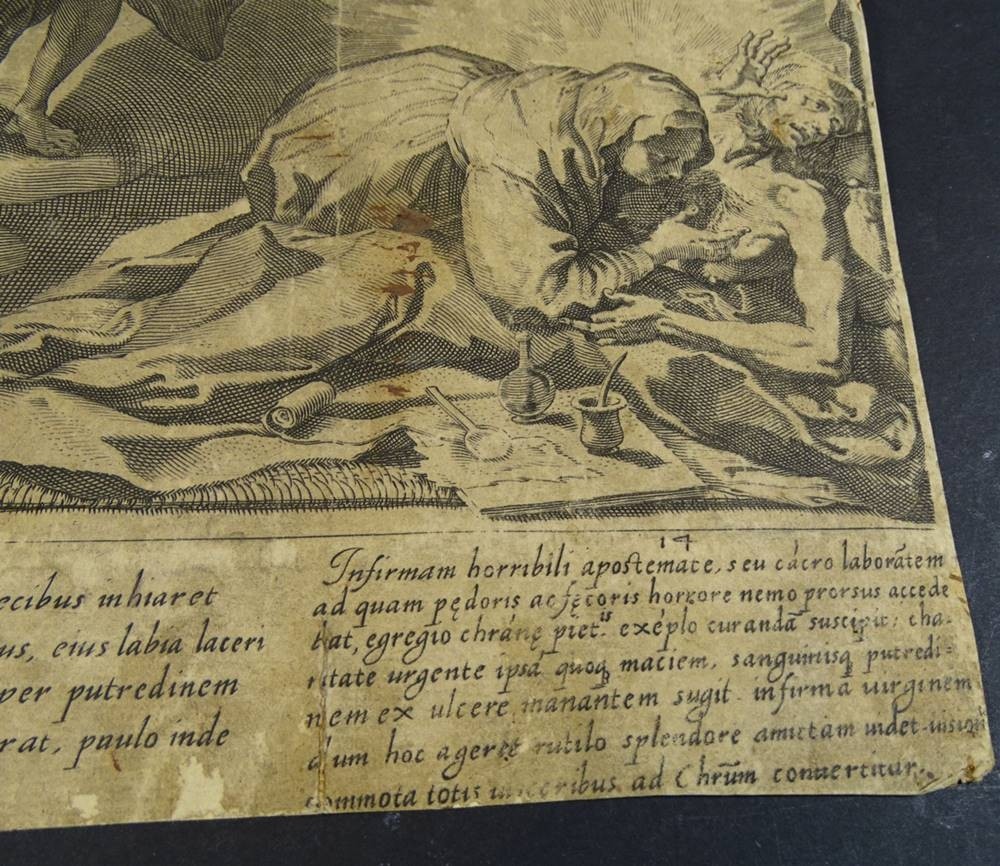 ecibus inhiaret
us, eius labia laceri
per putredinem
rat, paulo inde
14
Infirmam horribili apostemate, seu cácro laborātem
ad quam pędoris ac fęcoris horrore nemo prorsus accede
bat, egregio chr̄ánę piet.is exéplo curandā suscipit; cha-
ritate urgente ipsā quoq maciem, sanguinisq putredi-
nem ex ulcere manantem sugit. infirmā uirginem
dum hoc ageret rutilo splendore amictam uidet uision
commota totis ceribus ad Chrūm conuertitur.